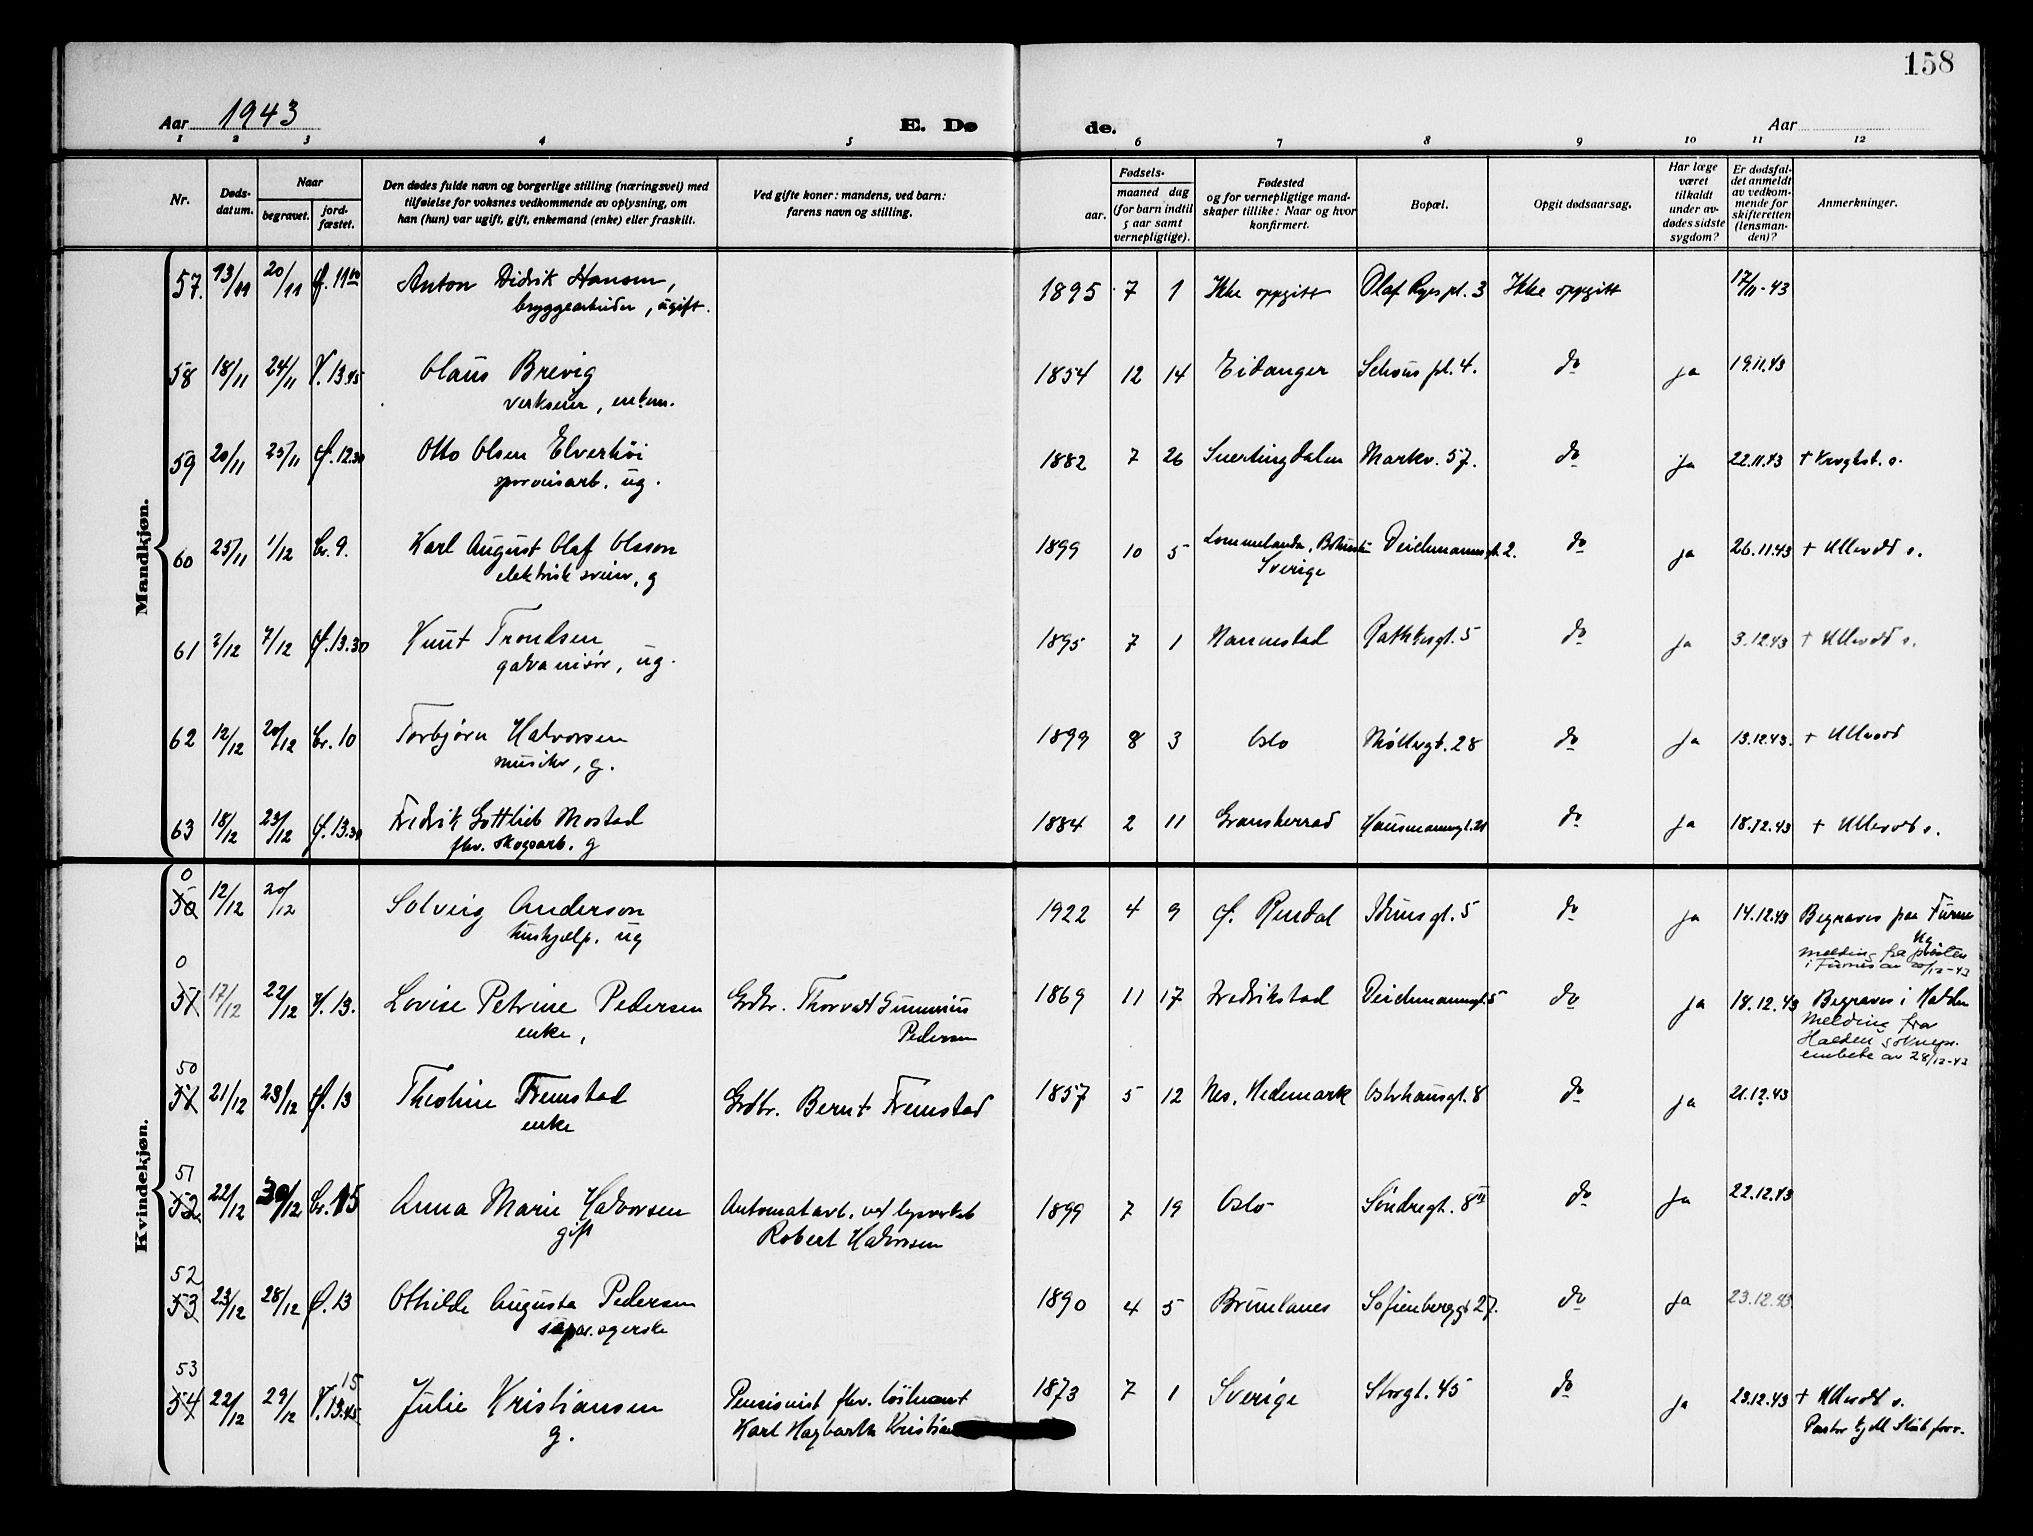 158
Aar 1943
E. Dø
de.
Aar
1 2 3 4 5 6 7 8 9 10 11 12
Nr.
Døds-
datum.
Naar
begravet.
jord-
fæstet.
Den dødes fulde navn og borgerlige stilling (næringsvei) med
tilføielse for voksnes vedkommende av oplysning, om
han (hun) var ugift, gift, enkemand (enke) eller fraskilt.
Ved gifte koner: mandens, ved barn:
farens navn og stilling.
Fødsels-
aar.
maaned dag
(for barn indtil
5 aar samt
vernepligtige).
Fødested
og for vernepligtige mand-
skaper tillike: Naar og hvor
konfirmert.
Bopæl.
Opgit dødsaarsag.
Har læge
været
tilkaldt
under av-
dødes sidste
sygdom?
Er dødsfal-
det anmeldt
av vedkom-
mende for
skifteretten
(lensman-
den)?
Anmerkninger.
Mandkjøn.
57. 13/11 20/11 Ø. 11 00 Anton Didrik Hansen, 1895 7 1 Ikke oppgitt Olaf Ryes pl. 3 Ikke oppgitt 17/11-43
bryggearbeider, ugift.
58 18/11 24/11 V. 13.45 Olaus Brevig 1854 12 14 Eidanger Schous pl. 4. do ja 19.11.43
verkseier, enkem.
59 20/11 25/11 Ø. 12.30 Otto Olsen Elverhöi 1882 7 26 Snertingdalen Markv. 57. do ja 22.11.43 + Krogst. s.
sporveisarb. ug.
60 25/11 1/12 Cr. 9. Karl August Olaf Olsson 1899 10 5 Lommelanda, Deichmannsgt. 2. do ja 26.11.43 + Ullevål s.
elektrik sveiser, g Sverige
61 2/12 7/12 Ø. 13.30 Knut Trondsen 1895 7 1 Nannestad Rathkesgt. 5 do ja 3.12.43 + Ullevål s.
galvanisör, ug.
62 12/12 20/12 Cr. 10 Torbjørn Halvorsen 1899 8 3 Oslo Møllergt. 28 do ja 13.12.43. + Ullevål
musiker, g.
63 18/12 23/12 Ø. 13.30 Fredrik Gottlieb Mostad 1884 2 11 Gransherrad Hausmannsgt. 21 do ja 18.12.43 + Ullevål s.
fhv. skogsarb. g
Kvindekjøn.
0
50 12/12 20/12 Solveig Anderson 1922 4 9 Ø. Rendal Idunsgt. 5 do ja 14.12.43 Begraves paa Furnes
hushjelp. ug
melding fra presten
i Furnes av 20/12-43
0
51 17/12 22/12 V. 13. Lovise Petrine Pedersen Grdbr. Thorvald Gunnerius 1869 11 17 Fredrikstad Deichmannsgt. 5 do ja 18.12.43 Begraves i Halden
enke, Pedersen
Melding fra
Halden sokneps.
embete av 28/12-43
50
51 21/12 28/12 Ø. 13 Theoline Fremstad Grdbr. Bernt Fremstad 1857 5 12 Nes, Hedemark Osterhausgt. 8 do ja 21.12.43
enke
51
52 22/12 30/12 Cr. 15 Anna Marie Halvorsen Automatarb. ved lysverket 1899 7 19 Oslo Söndregt. 8 III do ja 22.12.43
gift Robert Halvorsen
52
53 23/12 28/12 Ø. 13 Othilde Augusta Pedersen 1890 4 5 Brunlanes Sofienberggt. 27. do ja 23.12.43
separ. syerske
53
54 22/12 29/12 V. 13.45 15 Julie Kristiansen Pensionist fhv. 1873 7 1 Sverige Storgt. 45 do ja 23.12.43 + Ullevål s.
g. Karl Hagbarth Pastor Kjell forr.